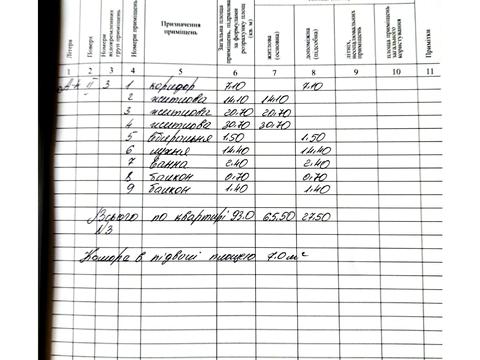 Літера
Поверх
Номери відокремлених груп приміщень
Номери приміщень
Призначення приміщень
Загальна площа приміщень, підрахована за формулами розрахунку площ (кв. м)
житлова (основна)
допоміжна (підсобна)
літніх, неопалювальних приміщень
площа приміщень загального користування
Примітки
1 2 3 4 5 6 7 8 9 10 11
А-ІІ ІІ 3 1 коридор 7.10 7.10
2 житлова 14.10 14.10
3 житлова 20.70 20.70
4 житлова 30.70 30.70
5 вбиральня 1.50 1.50
6 кухня 14.40 14.40
7 ванна 2.40 2.40
8 балкон 0.70 0.70
9 балкон 1.40 1.40
Всього по квартирі 93.0 65.50 27.50
N3
Комора в підвалі площею 7.0 м²